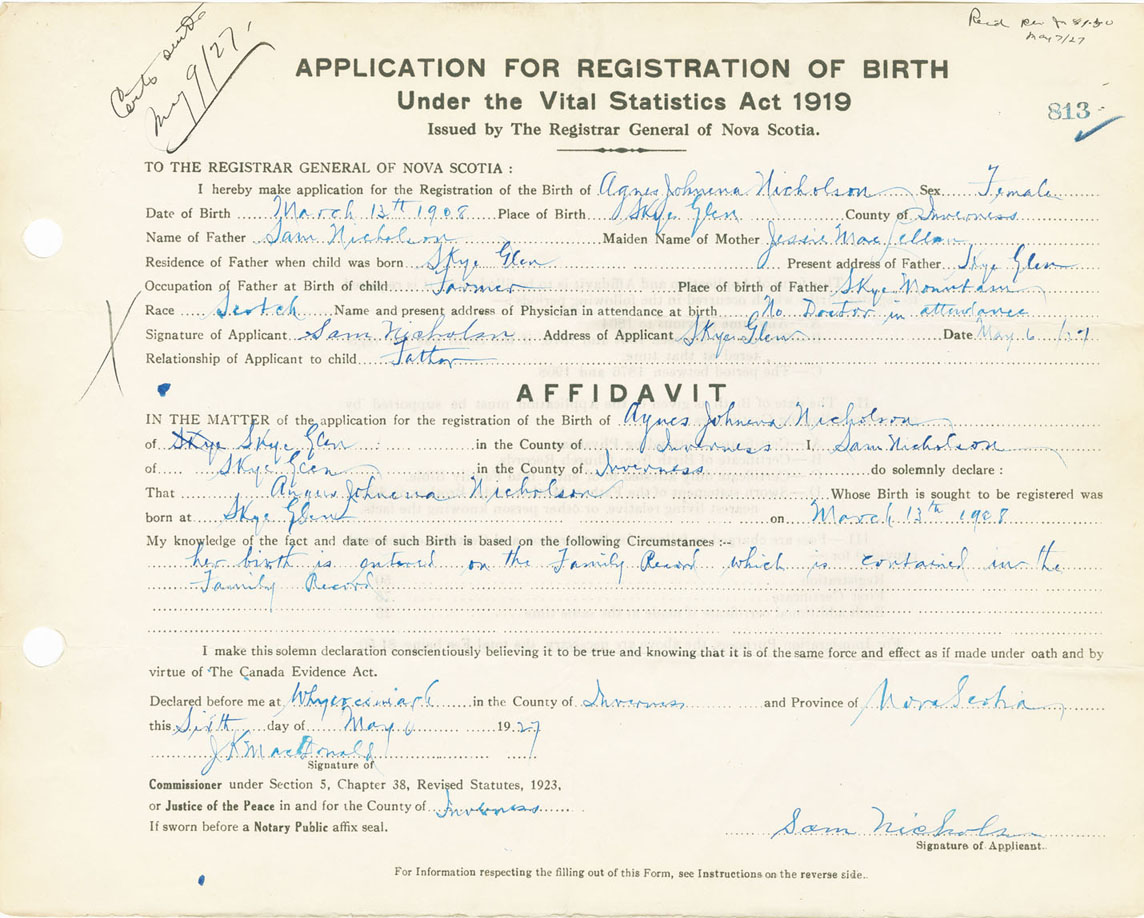 Certs sent
May 9/27,
Recd per $1.50
May 7/27
APPLICATION FOR REGISTRATION OF BIRTH
Under the Vital Statistics Act 1919
813
Issued by The Registrar General of Nova Scotia.
TO THE REGISTRAR GENERAL OF NOVA SCOTIA :
I hereby make application for the Registration of the Birth of Agnes Johnena Nicholson Sex Female
Date of Birth March 13th 1908 Place of Birth Skye Glen County of Inverness
Name of Father Sam Nicholson Maiden Name of Mother Jessie MacLellan
Residence of Father when child was born Skye Glen Present address of Father Skye Glen
Occupation of Father at Birth of child Farmer Place of birth of Father Skye Mountain
Race Scotch Name and present address of Physician in attendance at birth No Doctor in attendance
Signature of Applicant Sam Nicholson Address of Applicant Skye Glen Date May 6 /27
Relationship of Applicant to child Father
AFFIDAVIT
IN THE MATTER of the application for the registration of the Birth of Agnes Johnena Nicholson
of Skye Skye Glen in the County of Inverness I, Sam Nicholson
of Skye Glen in the County of Inverness do solemnly declare :
That Angus Johnena Nicholson Whose Birth is sought to be registered was
born at Skye Glen on March 13th 1908
My knowledge of the fact and date of such Birth is based on the following Circumstances :--
her birth is entered on the Family Record which is contained in the
Family Record
I make this solemn declaration conscientiously believing it to be true and knowing that it is of the same force and effect as if made under oath and by
virtue of The Canada Evidence Act.
Declared before me at Whycocomagh in the County of Inverness and Province of Nova Scotia
this Sixth day of May 6 1927
J K MacDonald
Signature of
Commissioner under Section 5, Chapter 38, Revised Statutes, 1923,
or Justice of the Peace in and for the County of Inverness
If sworn before a Notary Public affix seal.
Sam Nicholson
Signature of Applicant.
For Information respecting the filling out of this Form, see Instructions on the reverse side.